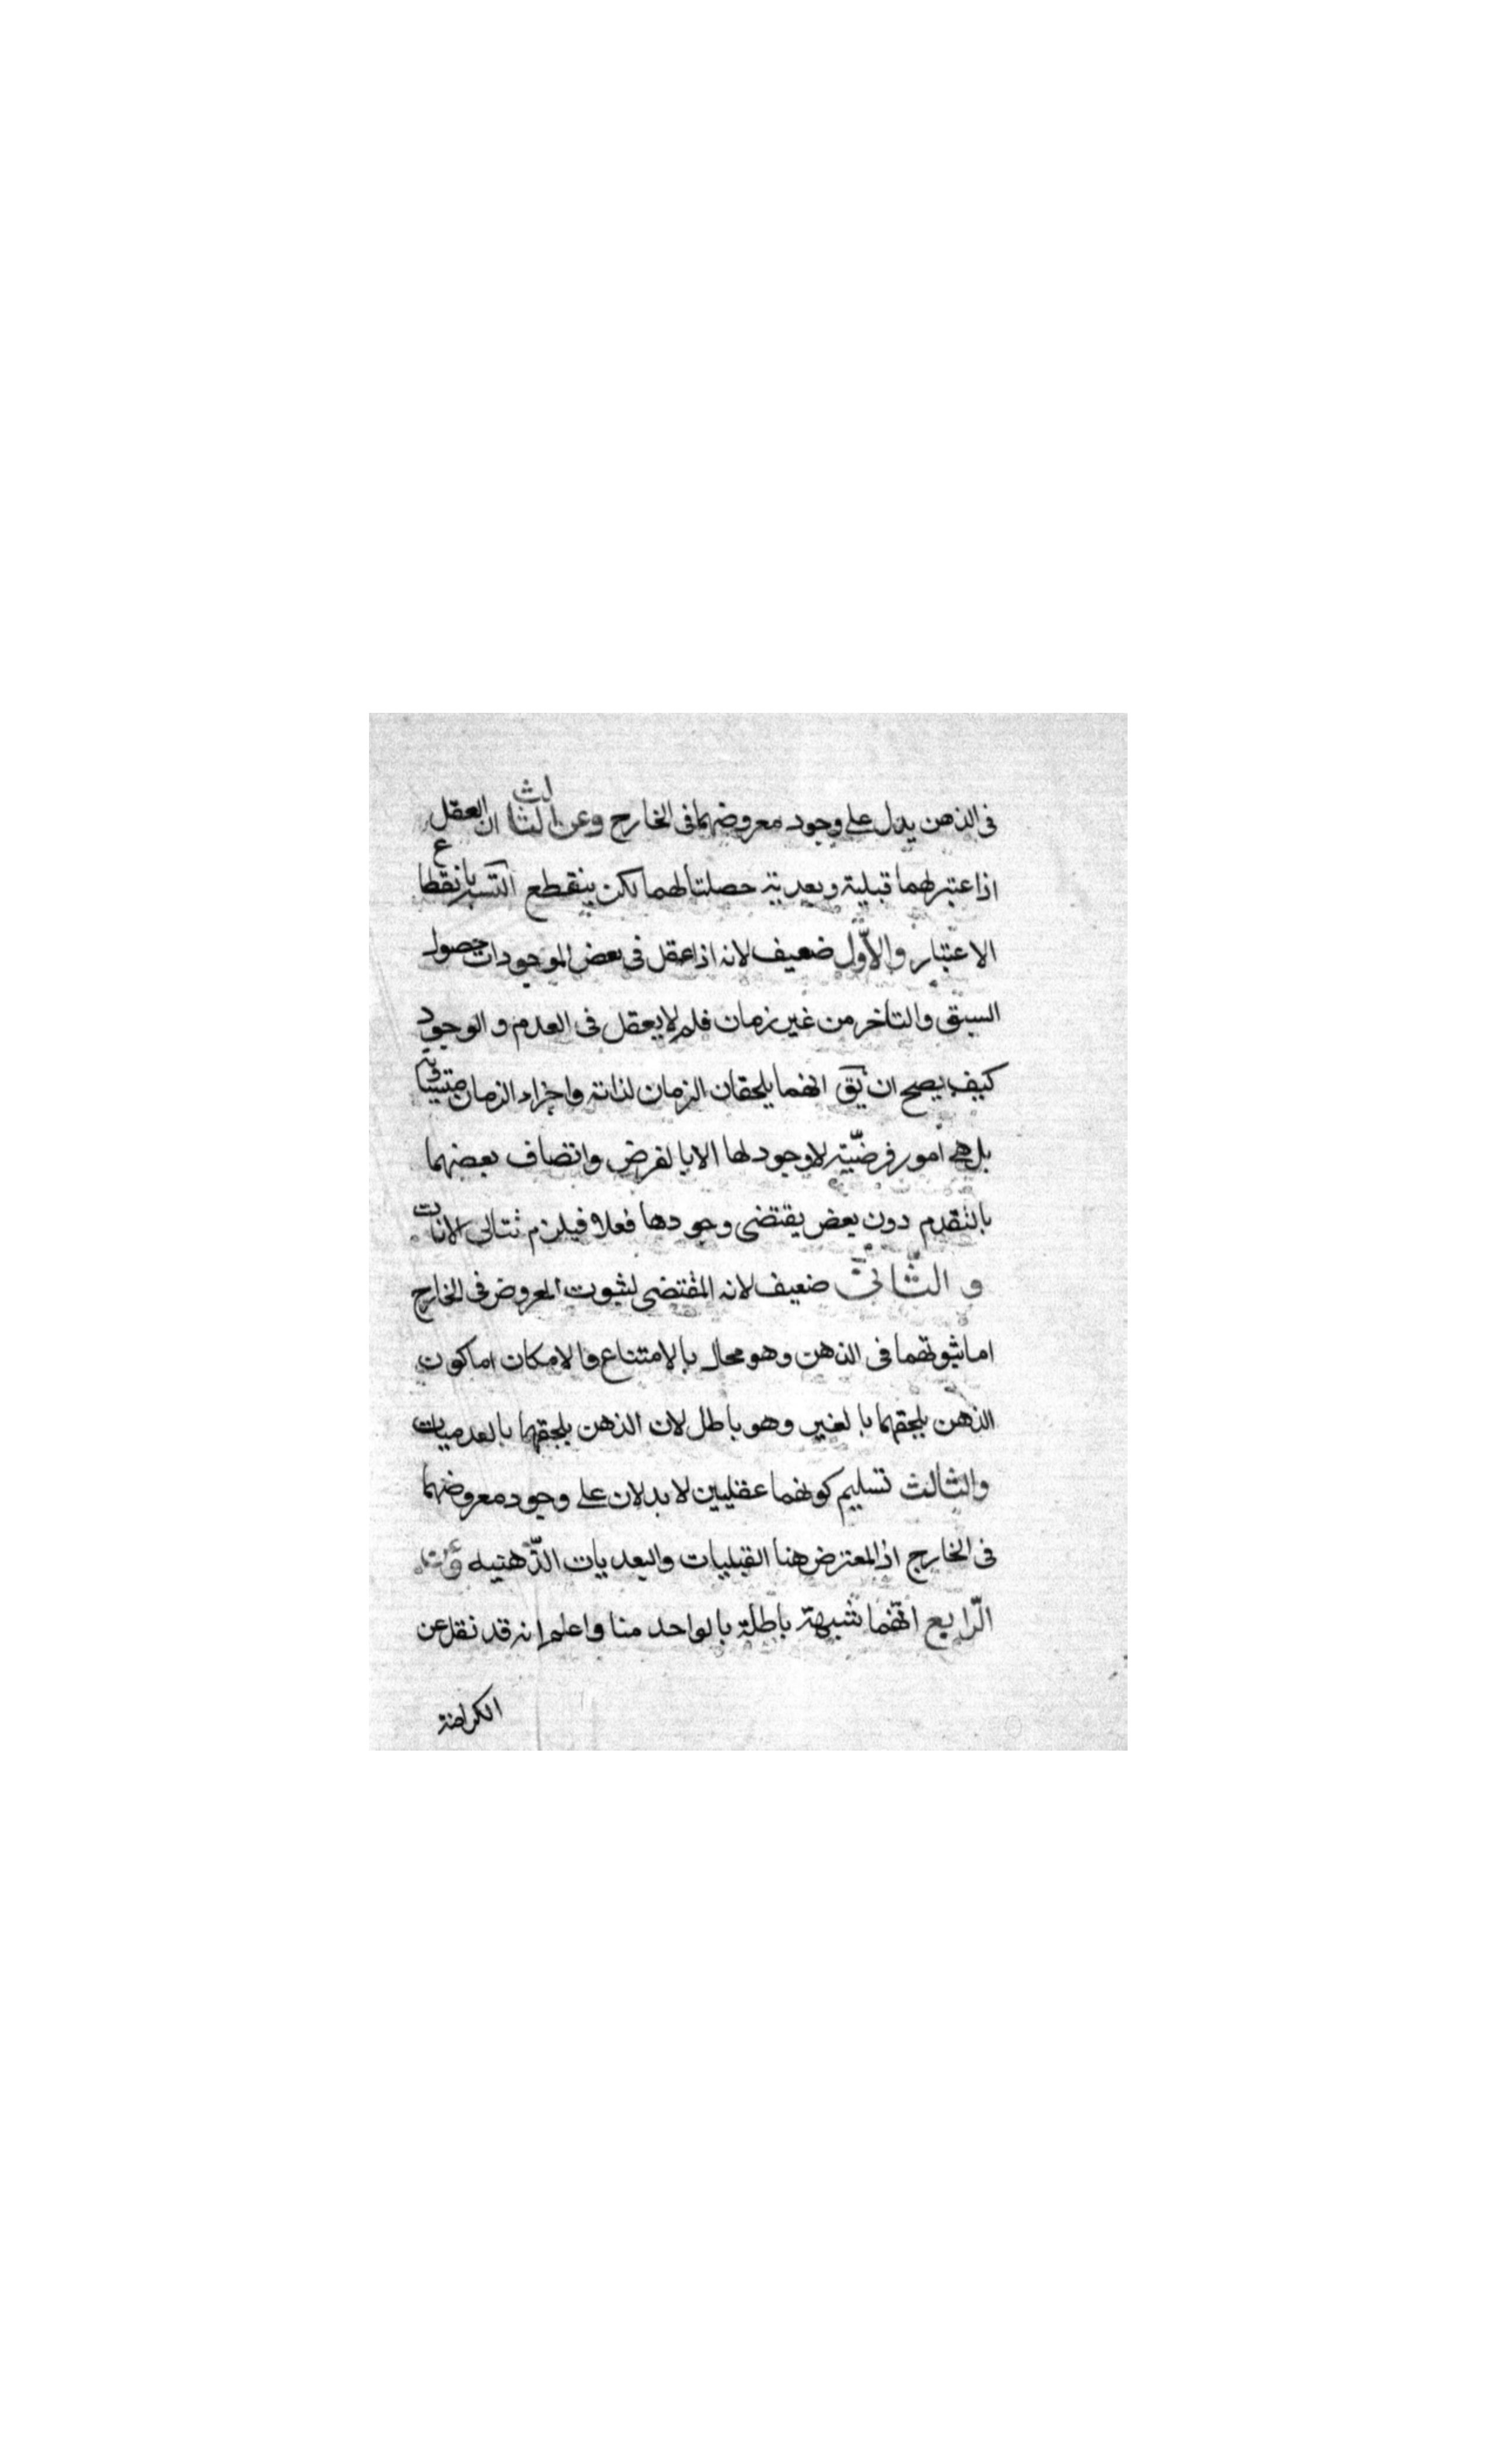 فى الذهن يدل على وجود معروضهما فى الخارج وعن الثالث ان العقل
اذا عتبر لهما قبلية وبعدية حصلتا لهما لكن ينقطع التسلسل بانقطاع
الاعتبار والاوّل ضعيف لانه اذا عقل فى بعض الموجودات حصول
السبق والتاخر من غير زمان فلم لا يعقل فى العدم و الوجود
كيف يصح ان يق انهما يلحقان الزمان لذاته واجزاء الزمان متساوية
بل هى امور فرضيّة لا وجود لها الا بالفرض واتصاف بعضهما
بالتقدم دون بعض يقتضى وجودها فعلا فيلزم تتالى الانات
و الثّانى ضعيف لانه المقتضى لثبوت المعروض فى الخارج
اما ثبوتهما فى الذهن وهو محال بالامتناع والامكان اما كون
الذهن يلحقهما بالغير وهو باطل لان الذهن يلحقهما بالعدميات
والثالث تسليم كونهما عقليين لا يدلان على وجود معروضهما
فى الخارج اذ المعترض هنا القبليات والبعديات الذّهنيه
الرّابع انهما شبهة باطلة بالواحد منا واعلم انه قد نقل عن